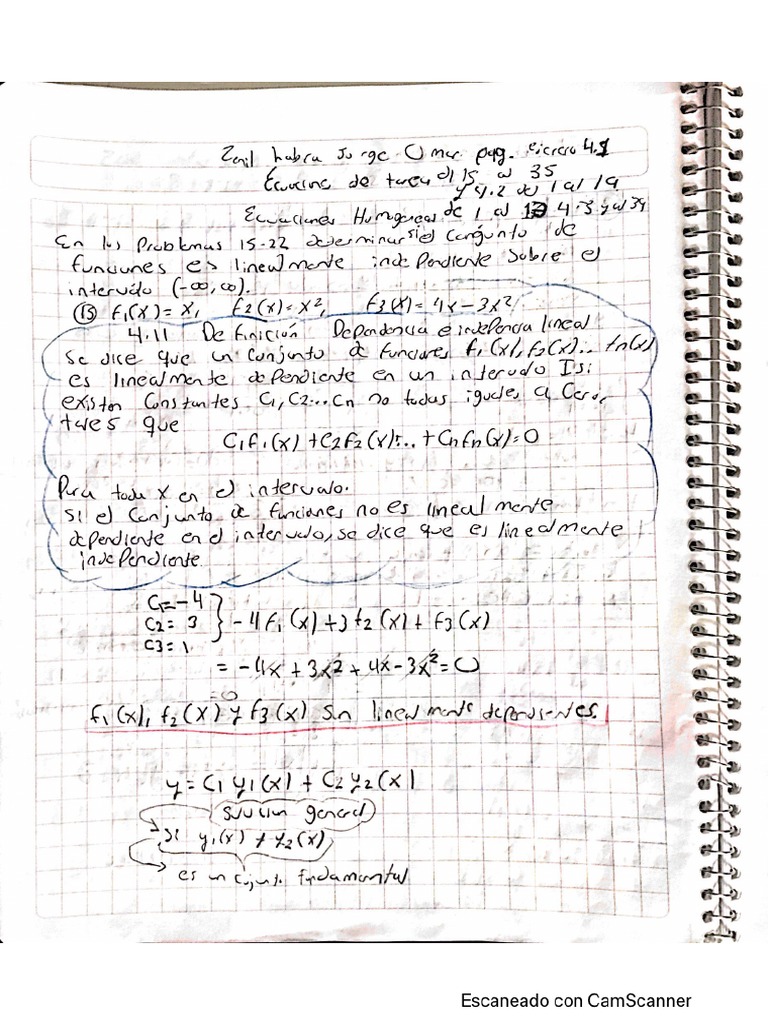 Jorge Omar pag. 4.1
de tarea del 15 al 35
y 4.2 de 1 al 19
Ecuaciones Homogeneas de 1 al 4.3 y al 34
En los Problemas 15-22 determinar si el conjunto de
funciones es linealmente independiente sobre el
intervalo (-∞,∞).
(15) f1(x) = x, f2(x) = x², f3(x) = 4x - 3x²
4.11 Definición Dependencia e indepencia lineal
Se dice que un conjunto de funciones f1(x), f2(x)... fn(x)
es linealmente dependiente en un intervalo I si
existen Constantes C1, C2...Cn no todas iguales a Cero,
tales que
C1f1(x) + C2f2(x)+... + Cnfn(x) = 0
Para toda x en el intervalo.
Si el conjunto de funciones no es lineal mente
dependiente en el intervalo, se dice que es linealmente
independiente.
C1=-4
C2= 3 } -4f1(x) + 3f2(x) + f3(x)
C3= 1
= -4x + 3x² + 4x - 3x² = 0
=0
f1(x), f2(x) y f3(x) Son lineal mente dependientes.
y = C1 y1(x) + C2 y2(x)
Solución general
si y1(x) y y2(x)
es un conjunto fundamental
Escaneado con CamScanner